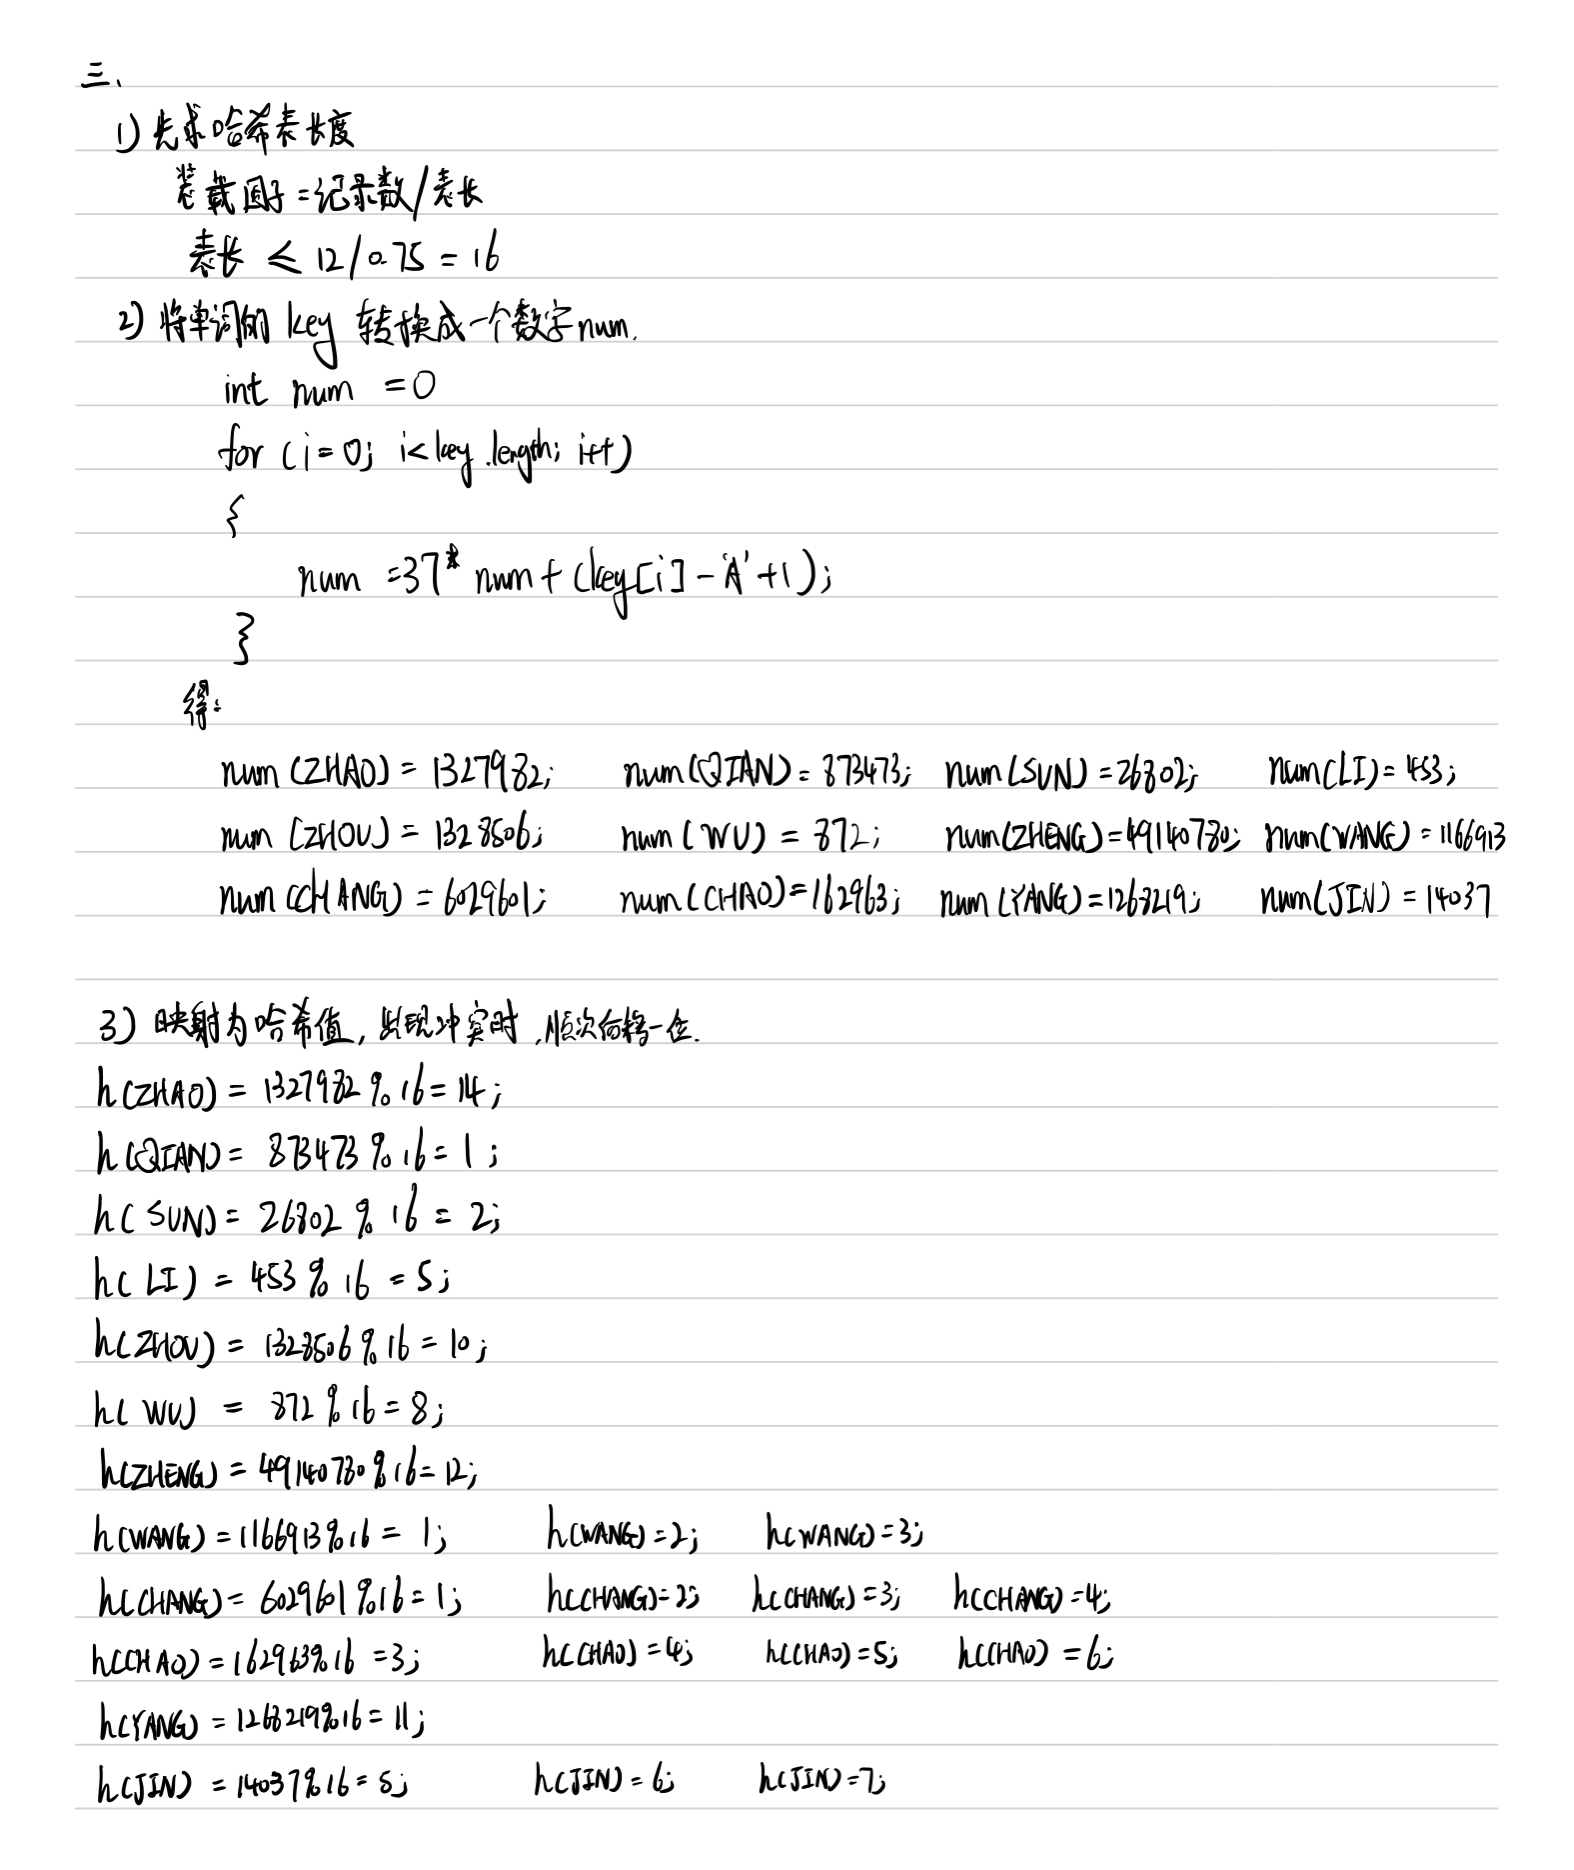 三、
1) 先求哈希表长度
装载因子=记录数/表长
表长 ≤ 12/0.75 = 16
2) 将单词的 key 转换成一个数字 num.
int num =0
for (i=0; i<key.length; i++)
{
num =37* num+(key[i]-'A'+1);
}
得:
num(ZHAO) = 1327982; num(QIAN)= 873473; num(SUN)=26802; num(LI)=453;
num(ZHOU) = 1328506; num(WU) = 872; num(ZHENG)=49140780; num(WANG)=1166913
num(CHANG) = 6029601; num(CHAO)=162963; num(YANG)=1268219; num(JIN) = 14037
3) 映射为哈希值, 出现冲突时,顺次向移一位.
h(ZHAO) = 1327982%16=14;
h(QIAN)= 873473%16=1;
h(SUN)= 26802%16=2;
h(LI) = 453%16=5;
h(ZHOU) = 1328506%16=10;
h(WU) = 872%16=8;
h(ZHENG) = 49140780%16=12;
h(WANG)=1166913%16=1; h(WANG)=2; h(WANG)=3;
h(CHANG)=6029601%16=1; h(CHANG)=2; h(CHANG)=3; h(CHANG)=4;
h(CHAO)=162963%16=3; h(CHAO)=4; h(CHAO)=5; h(CHAO)=6;
h(YANG)=1268219%16=11;
h(JIN) =14037%16=5; h(JIN)=6; h(JIN)=7;